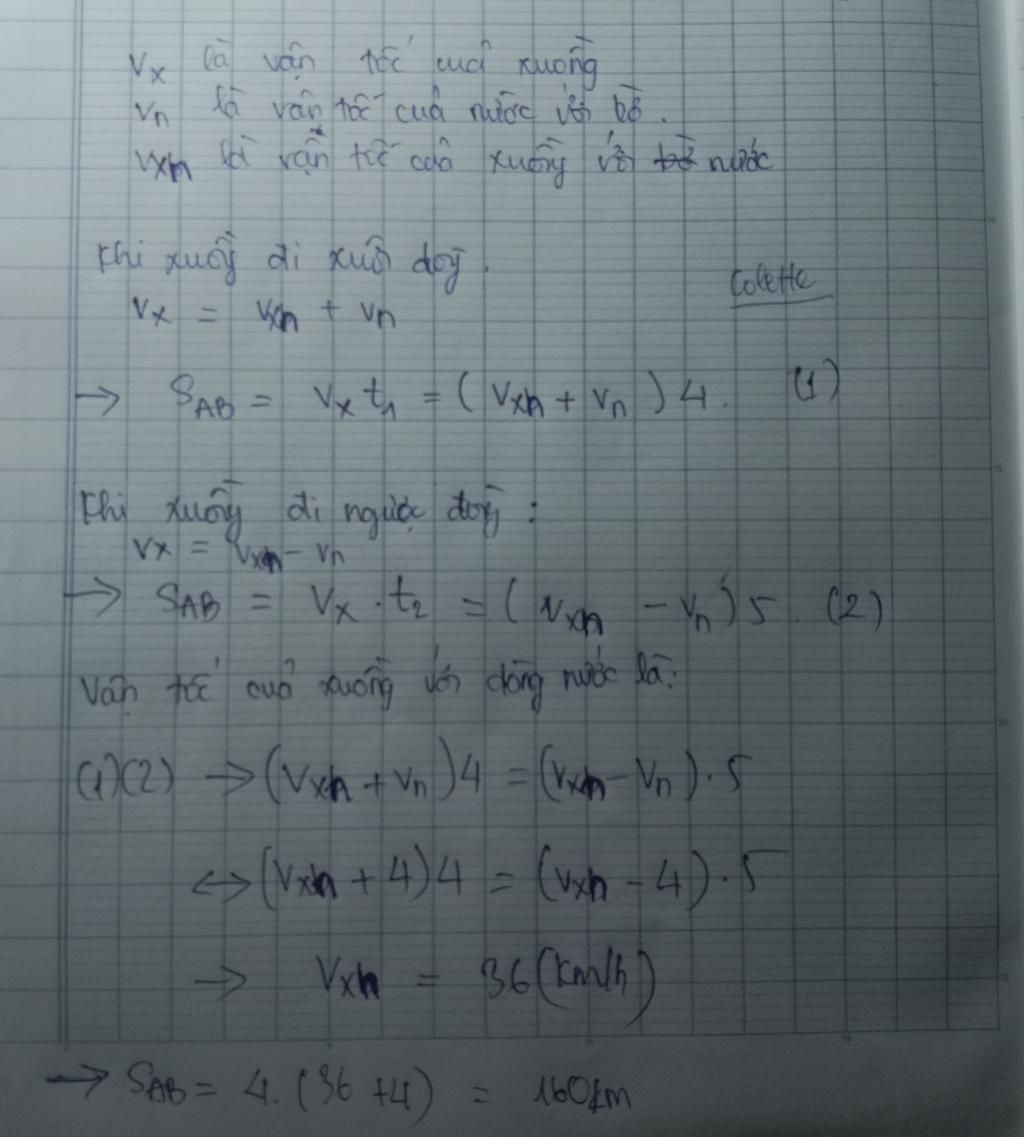 Vx là vận tốc cuả xuồng
Vn là vận tốc cuả nước với bờ.
Vxn là vận tốc cuả xuồng với bờ nước
Khi xuồng đi xuôi dòng.
Colette
Vx = Vxn + Vn
→ SAB = Vx t1 = (Vxn + Vn) 4. (1)
Khi xuồng đi ngược dòng :
Vx = Vxn - Vn
→ SAB = Vx . t2 = (Vxn - Vn) 5. (2)
Vận tốc cuả xuồng với dòng nước là:
(1)(2) → (Vxn + Vn) 4 = (Vxn - Vn) . 5
↔ (Vxn + 4) 4 = (Vxn - 4) . 5
→ Vxn = 36 (km/h)
→ SAB = 4. (36 + 4) = 160km